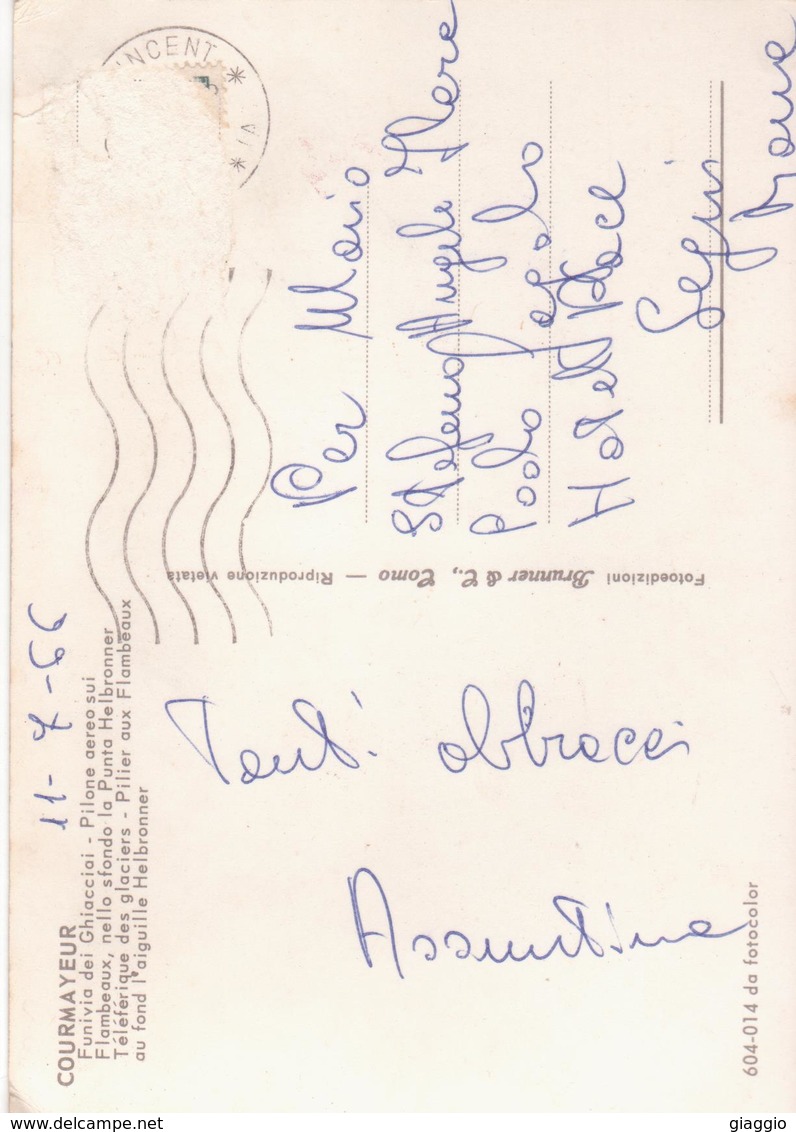 COURMAYEUR
Funivia dei Ghiacciai - Pilone aereo sui
Flambeaux, nello sfondo la Punta Helbronner
Téléférique des glaciers - Pilier aux Flambeaux
au fond l'aiguille Helbronner
11-7-66
Tanti abbracci
Assuntina
604-014 da fotocolor
Fotoedizioni Brunner & C., Como — Riproduzione vietata
INCENT * VI *
Per Mario
Stefano Angela
Paolo
Hotel Place
Roma
www.delcampe.net
giaggio